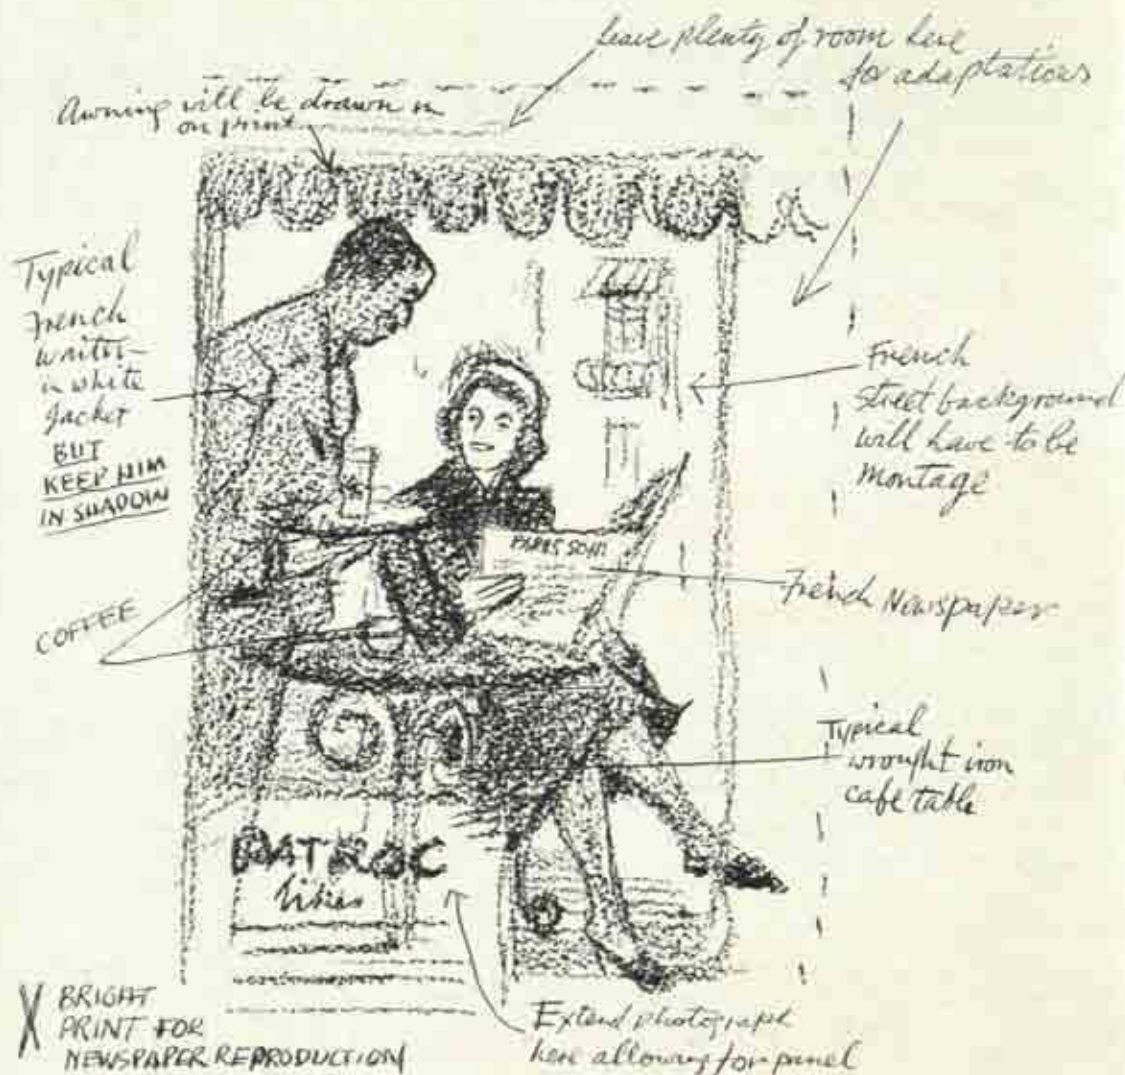 leave plenty of room here
for adaptations
Awning will be drawn in
on print
Typical
French
waiter-
in white
Jacket
BUT
KEEP HIM
IN SHADOW
French
street background
will have to be
Montage
COFFEE
French Newspaper
Typical
wrought iron
cafe table
PATROC
X BRIGHT
PRINT FOR
NEWSPAPER REPRODUCTION
Extend photograph
here allowing for panel